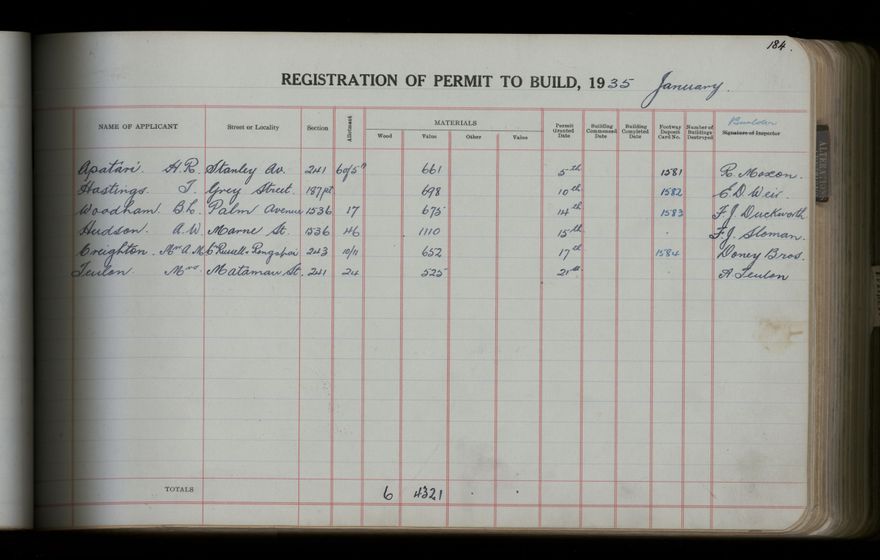 184.
REGISTRATION OF PERMIT TO BUILD, 1935 January.
NAME OF APPLICANT Street or Locality Section Allotment MATERIALS Wood Value Other Value Permit Granted Date Building Commenced Date Building Completed Date Footway Deposit Card No. Number of Buildings Destroyed Builder Signature of Inspector
Apatari. H.R. Stanley Av. 241 661 5th 1581 R. Moxon.
Hastings. J. Grey Street. 187pt 698 10th 1582 E D Weir.
Woodham. B L. Palm Avenue 1536 17 675 14th 1583 F J Duckworth
Hudson. A.W. Marne St. 1536 46 1110 15th F.J. Sloman.
Creighton. Mrs A.M. C Russell & Rongopai 243 10/11 652 17th 1584 Doney Bros.
Teulon Mrs. Matamau St. 241 24 525 21st A Teulon
TOTALS 6 4321
ALTERATIONS